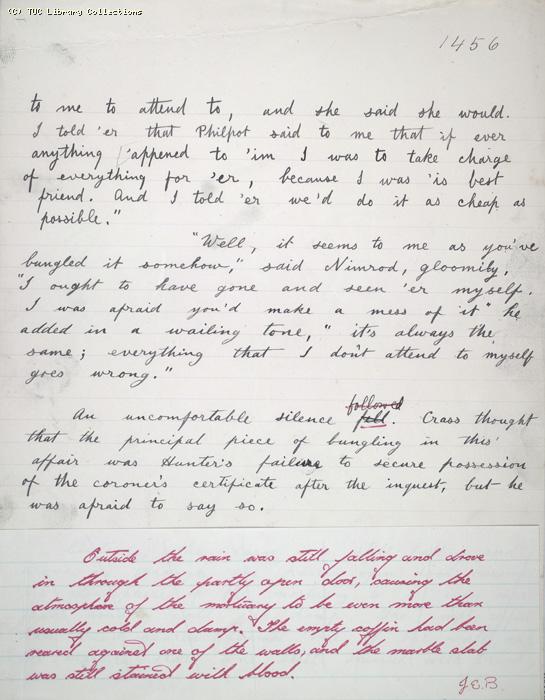 (C) TUC Library Collections
1456
to me to attend to, and she said she would.
I told 'er that Philpot said to me that if ever
anything 'appened to 'im I was to take charge
of everything for 'er, because I was 'is best
friend. And I told 'er we'd do it as cheap as
possible."
"Well, it seems to me as you've
bungled it somehow," said Nimrod, gloomily,
"I ought to have gone and seen 'er myself.
I was afraid you'd make a mess of it" he
added in a wailing tone, "it's always the
same; everything that I don't attend to myself
goes wrong."
followed
An uncomfortable silence fell. Crass thought
that the principal piece of bungling in this
affair was Hunter's failure to secure possession
of the coroner's certificate after the inquest, but he
was afraid to say so.
Outside the rain was still falling and drove
in through the partly open door, causing the
atmosphere of the mortuary to be even more than
usually cold and damp. The empty coffin had been
reared against one of the walls, and the marble slab
was still stained with blood.
J.E.B.